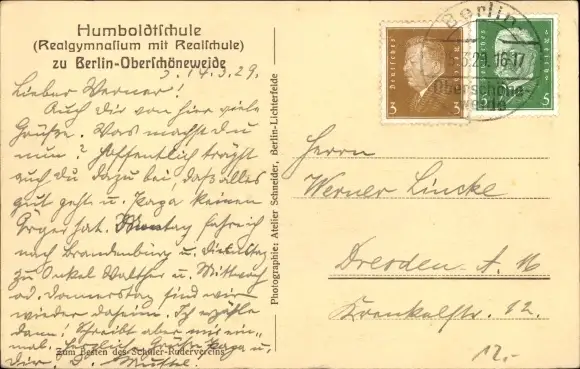 Humboldtschule
(Realgymnasium mit Realschule)
zu Berlin-Oberschöneweide
14.3.29.
Lieber Werner!
Auch dir von hier viele
Grüße. Was machst du
nun? Hoffentlich trägst
auch du dazu bei, daß alles
gut geht u. Papa keinen
Ärger hat. Montag fahre ich
nach Brandenburg u. Dienstag
zu Onkel Walther u. Mittwoch
od. Donnerstag sind wir
wieder daheim. Ich erzähle
dann! Schreibt aber mir ein-
mal. Herzliche Grüße Papa u.
Dir. D. Mutter.
Zum Besten des Schüler-Rudervereins
Photographie: Atelier Schneider, Berlin-Lichterfelde
Deutsches Reich
3 3
5
Berlin-
29. 16-17
Oberschöne-
weide
Herrn
Werner Lincke
Dresden-A. 16
Krenkelstr. 12.
12.-